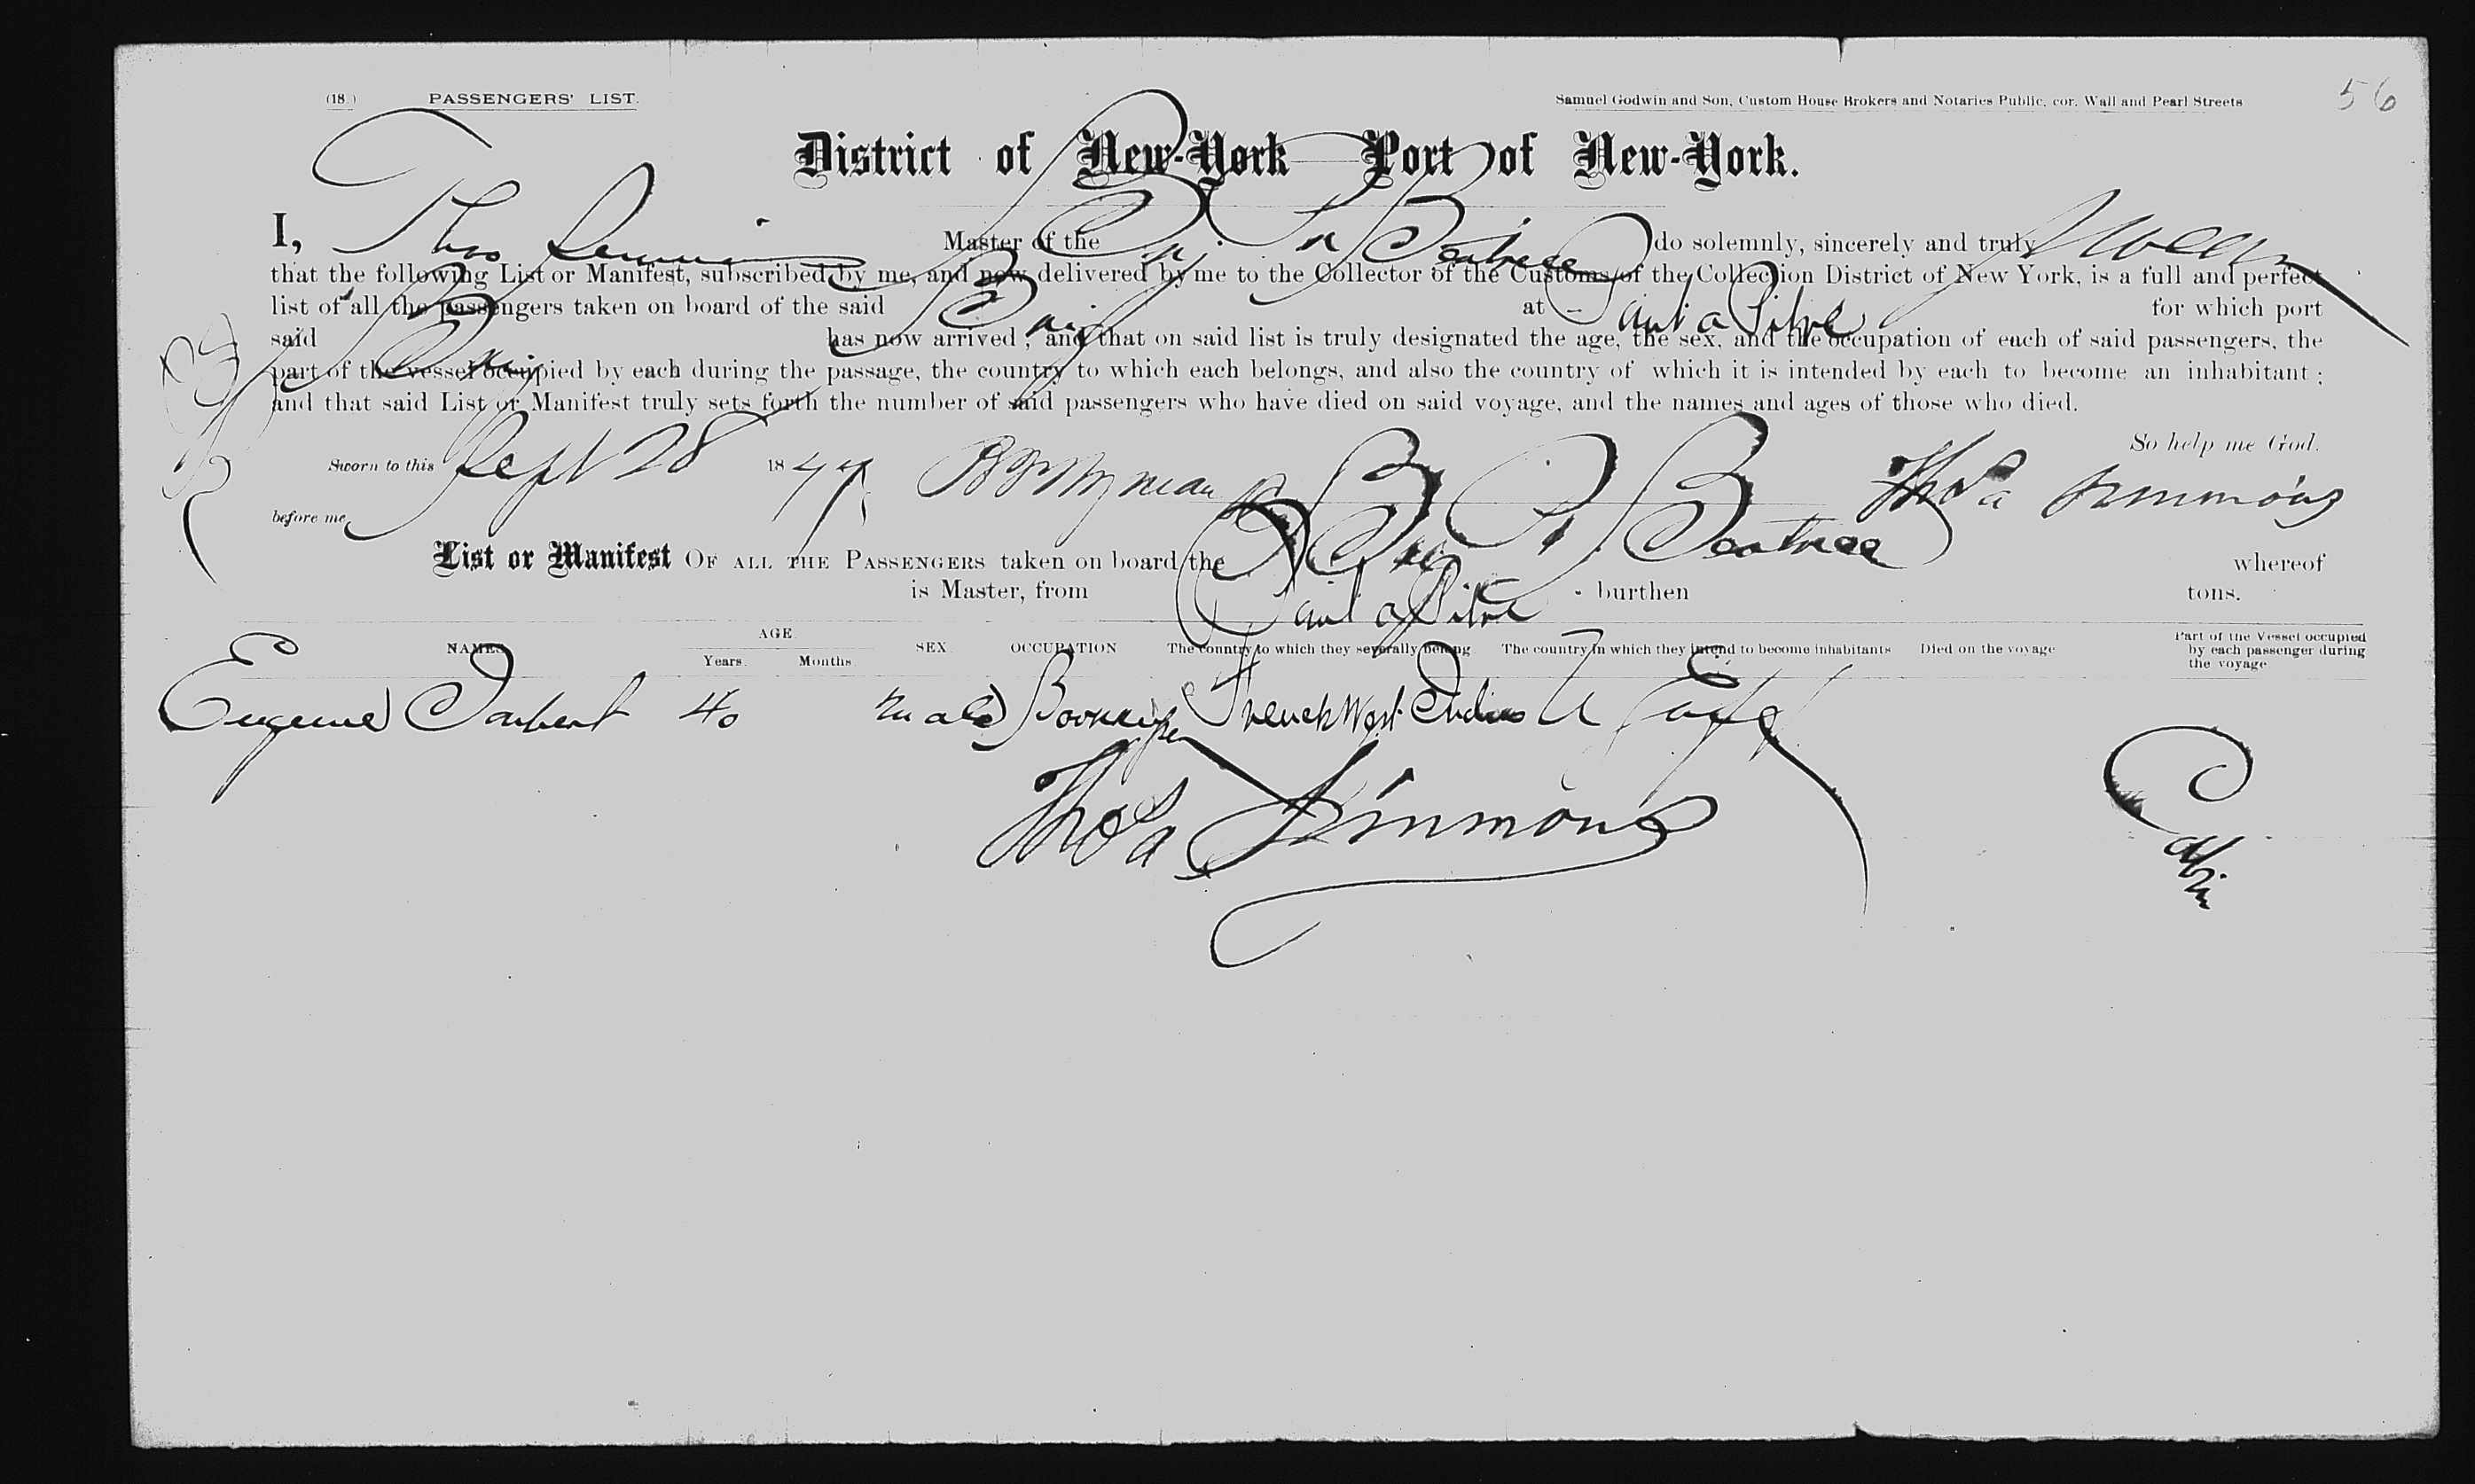 (18.) PASSENGERS' LIST. Samuel Godwin and Son, Custom House Brokers and Notaries Public, cor. Wall and Pearl Streets 56
District of New-York Port of New-York.
I, Thos Simmons Master of the Brig do solemnly, sincerely and truly swear
that the following List or Manifest, subscribed by me, and now delivered by me to the Collector of the Customs of the Collection District of New York, is a full and perfect
list of all the passengers taken on board of the said Brig at for which port
said Brig has now arrived; and that on said list is truly designated the age, the sex, and the occupation of each of said passengers, the
part of the vessel occupied by each during the passage, the country to which each belongs, and also the country of which it is intended by each to become an inhabitant;
and that said List or Manifest truly sets forth the number of said passengers who have died on said voyage, and the names and ages of those who died.
So help me God.
Sworn to this Sept 28 18 Thos a Simmons
before me
List or Manifest OF ALL THE PASSENGERS taken on board the Brig whereof
is Master, from burthen tons.
NAMES AGE Years. Months. SEX. OCCUPATION The country to which they severally belong The country in which they intend to become inhabitants Died on the voyage Part of the Vessel occupied by each passenger during the voyage
Eugene 40 male Bookkeeper French West Indies Cabin
Thos a Simmons